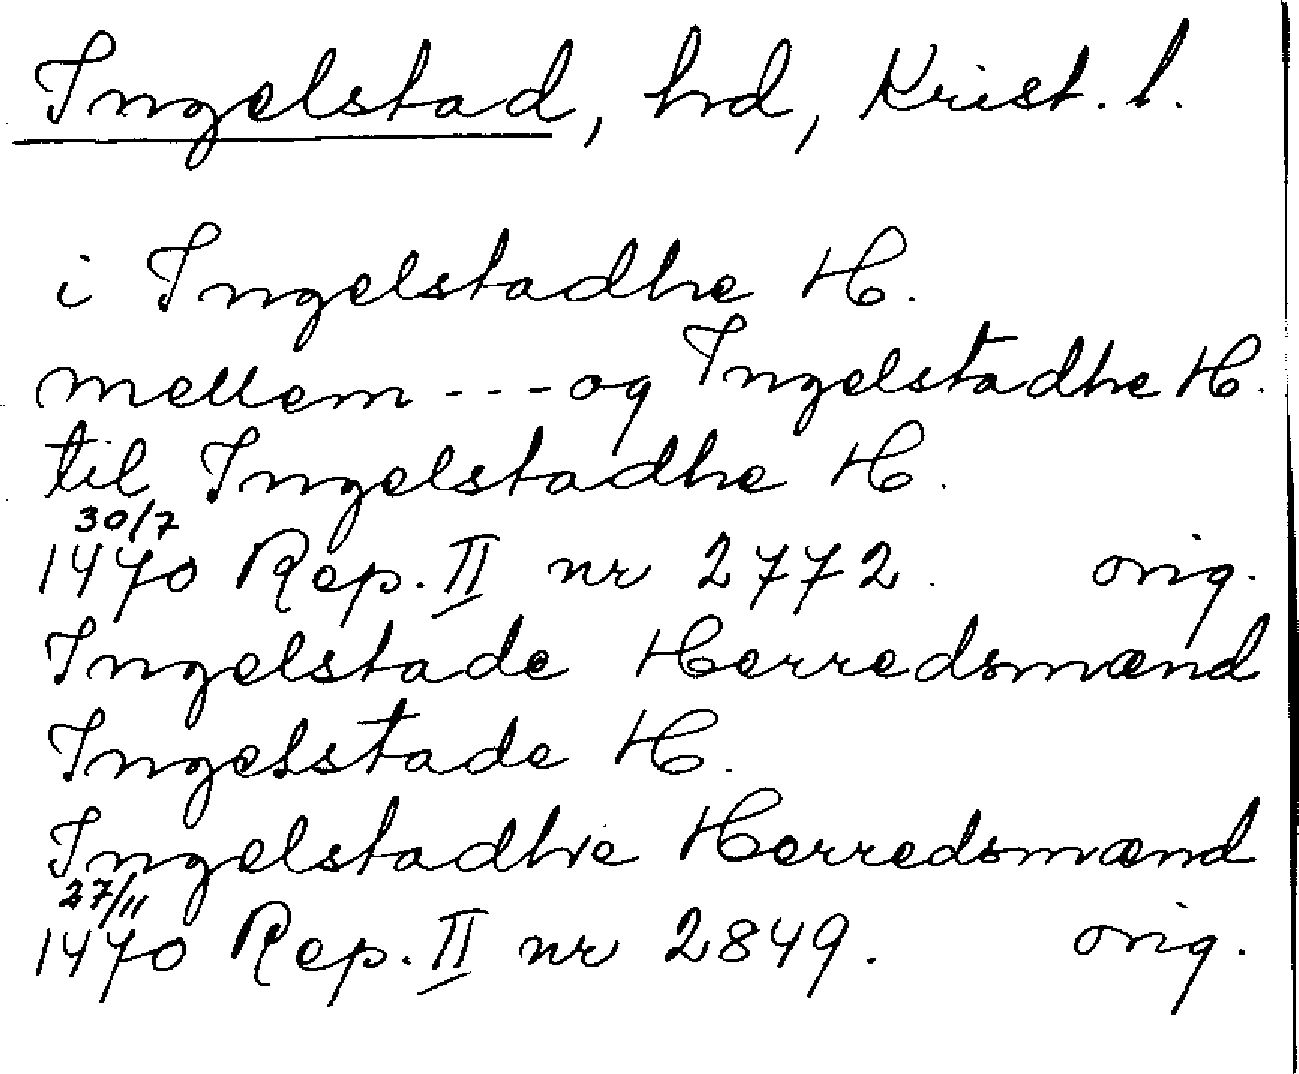 Ingelstad, hd, Krist. l.
i Ingelstadhe H.
mellem --- og Ingelstadhe H.
til Ingelstadhe H.
30/7
1470 Rep. II nr 2772. orig.
Ingelstade Herredsmænd
Ingelsstade H.
Ingelstadhe Herredsmænd
27/11
1470 Rep. II nr 2849. orig.